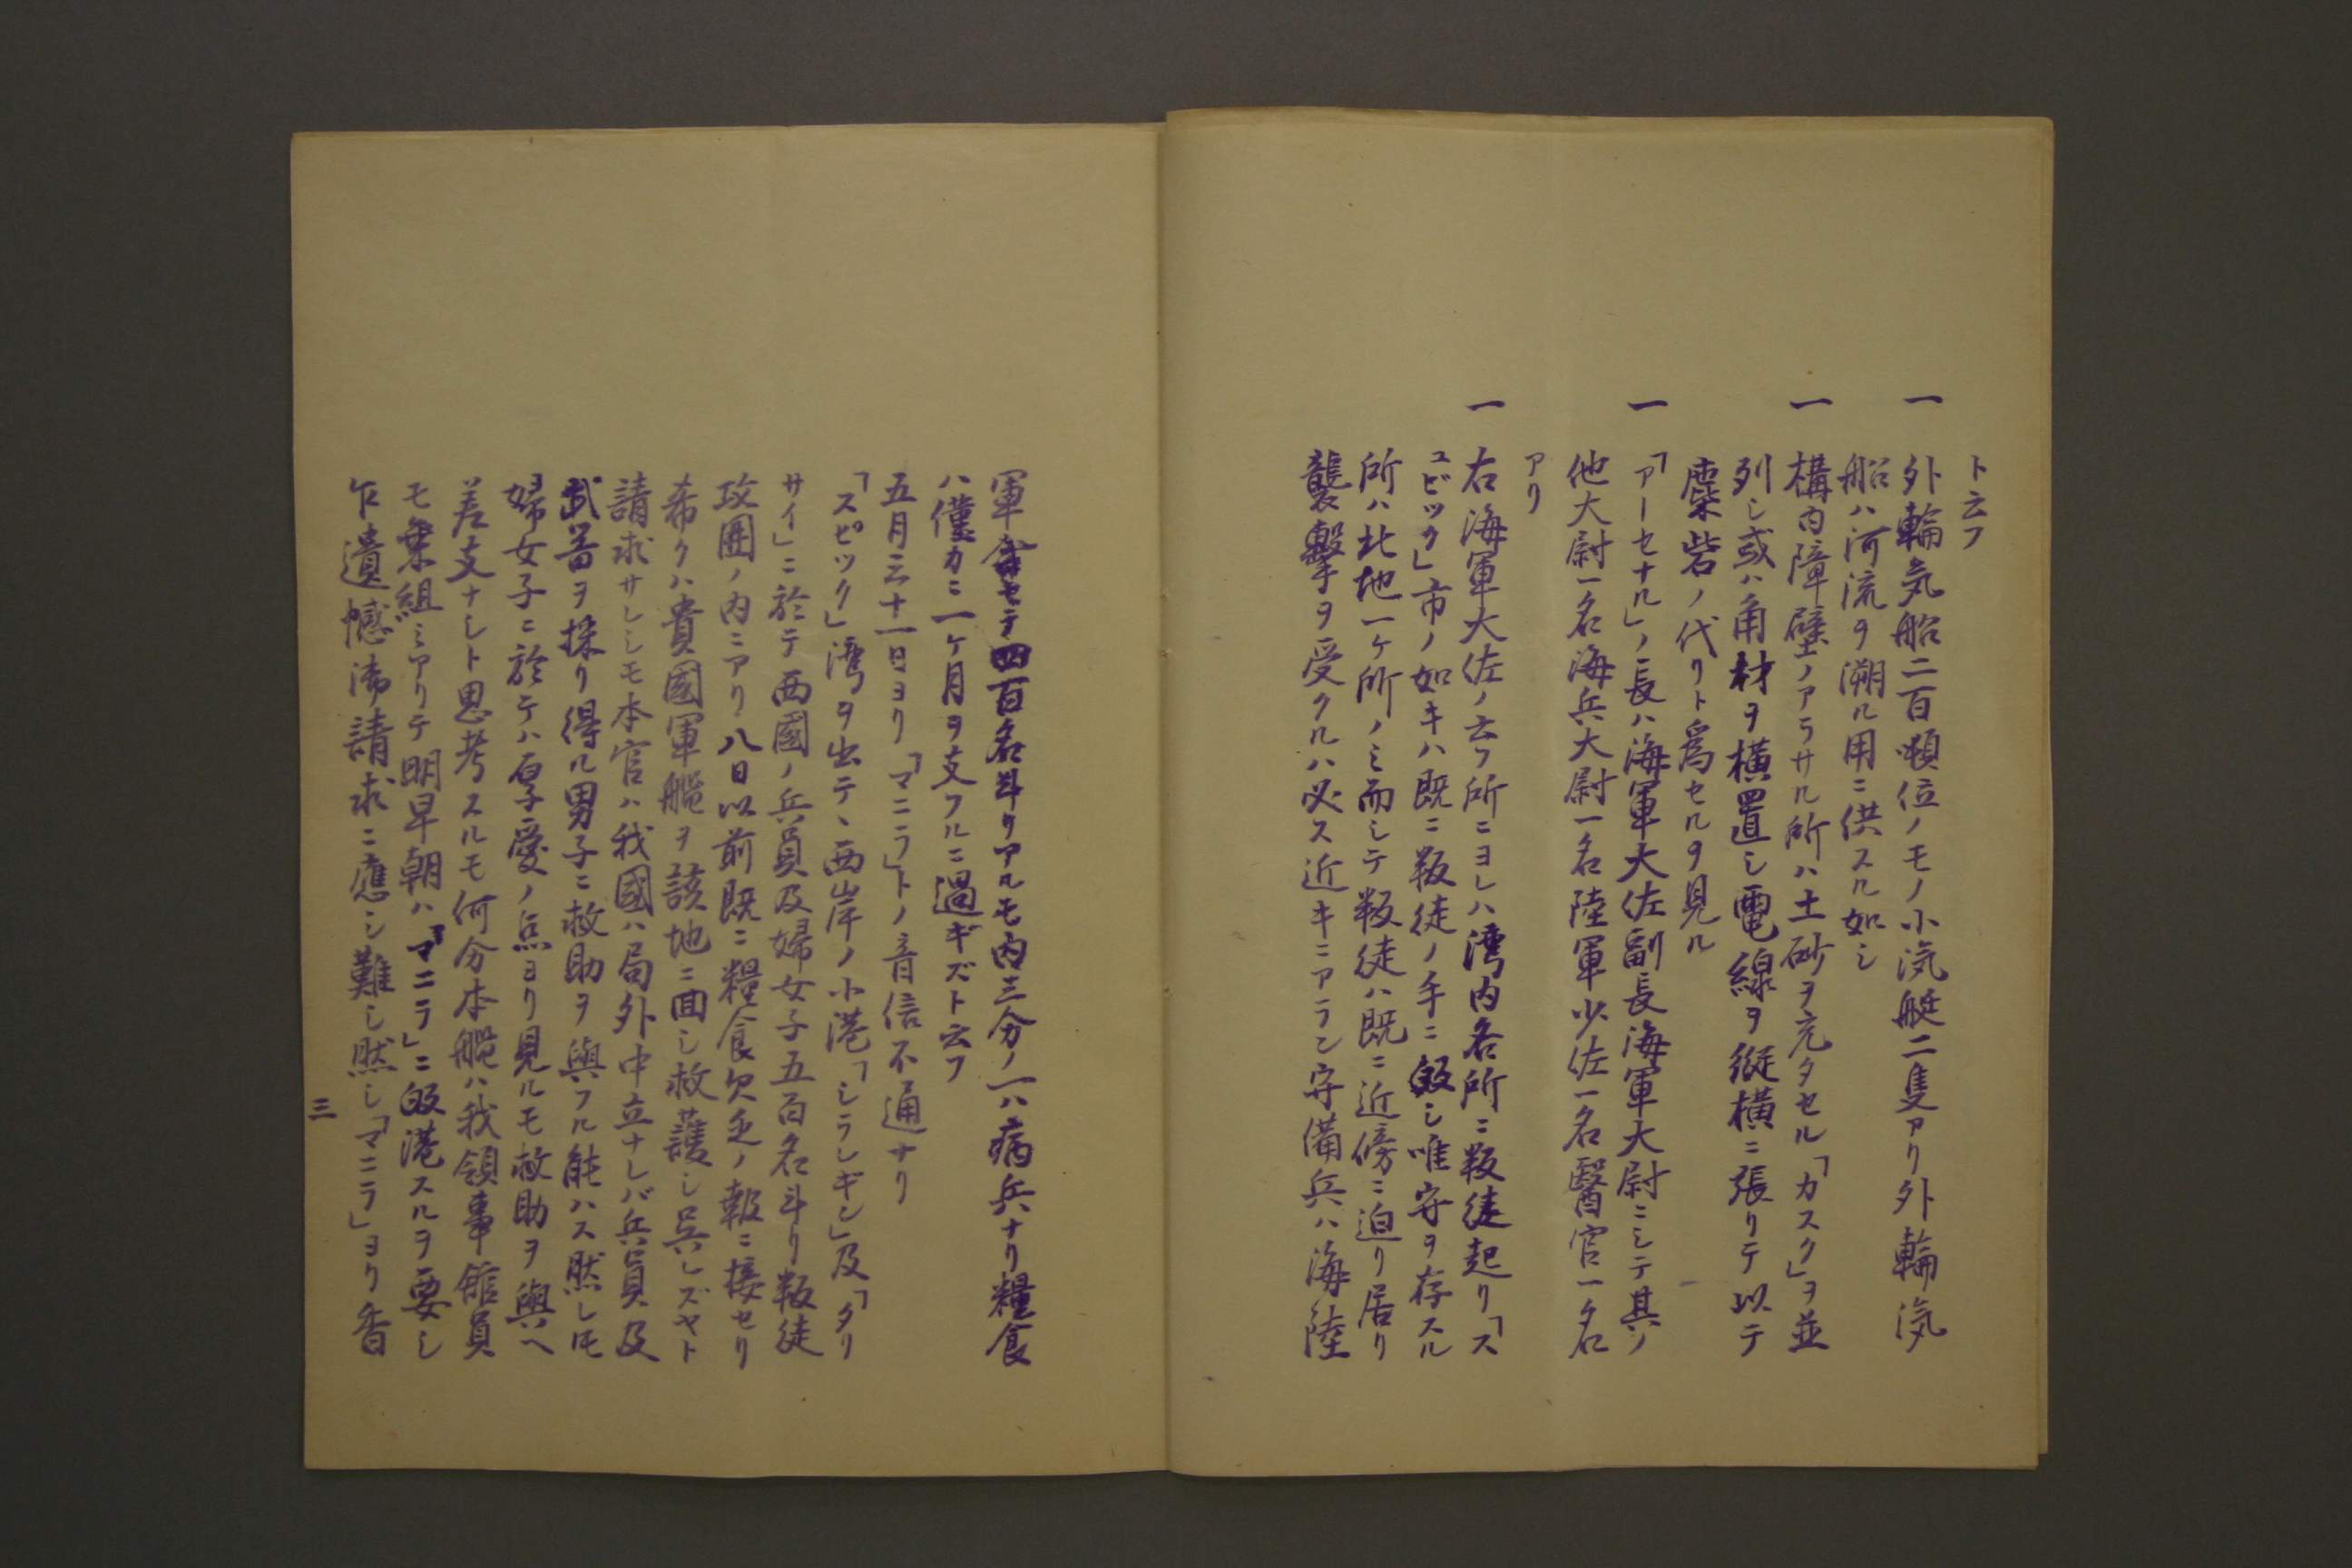 ト云フ
一 外輪気船二百噸位ノモノ小汽艇二隻アリ外輪汽
船ハ河流ヲ溯ル用ニ供スル如シ
一 構内障壁ノアラサル所ハ土砂ヲ充タセル「カスク」ヲ並
列シ或ハ角材ヲ横置シ電線ヲ縦横ニ張リテ以テ
塵柴砦ノ代リト為セルヲ見ル
一 「アーセナル」ノ長ハ海軍大佐副長海軍大尉ニシテ其ノ
他大尉一名海兵大尉一名陸軍少佐一名醫官一名
アリ
一 右海軍大佐ノ云フ所ニヨレハ湾内各所ニ叛徒起リ「ス
ユビック」市ノ如キハ既ニ叛徒ノ手ニ皈シ唯守ヲ存スル
所ハ此地一ケ所ノミ而シテ叛徒ハ既ニ近傍ニ迫リ居リ
襲撃ヲ受クルハ必ス近キニアラン守備兵ハ海陸
軍合セテ四百名斗リアルモ内三分ノ一ハ病兵ナリ糧食
ハ僅カニ一ケ月ヲ支フルニ過ギズト云フ
五月三十一日ヨリ「マニラ」トノ音信不通ナリ
「スピック」湾ヲ出テ、西岸ノ小港「シラレギン」及「タリ
サイ」ニ於テ西國ノ兵員及婦女子五百名斗リ叛徒
攻囲ノ内ニアリ八日以前既ニ糧食欠乏ノ報ニ接セリ
希クハ貴國軍艦ヲ該地ニ回シ救護シ呉レズヤト
請求サレシモ本官ハ我國ハ局外中立ナレバ兵員及
武器ヲ採リ得ル男子ニ救助ヲ與フル能ハス然レ𪜈
婦女子ニ於テハ厚愛ノ点ヨリ見ルモ救助ヲ與ヘ
差支ナシト思考スルモ何分本艦ハ我領事館員
モ乗組ミアリテ明早朝ハ「マニラ」ニ皈港スルヲ要シ
乍遺憾御請求ニ應シ難シ然シ「マニラ」ヨリ香
三